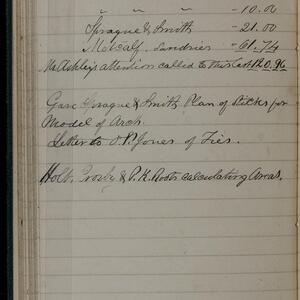 " " " - 10.00
Sprague & Smith - 21.00
Metcalf. Sundries - 61.74
Mr Ashley's attention called to this last $120.96
Gave Sprague & Smith Plan of Sticks for
Model of Arch.
Letter to O.P. Jones of Ties.
Holt, Crosby & P.K. Roots calculating Areas.